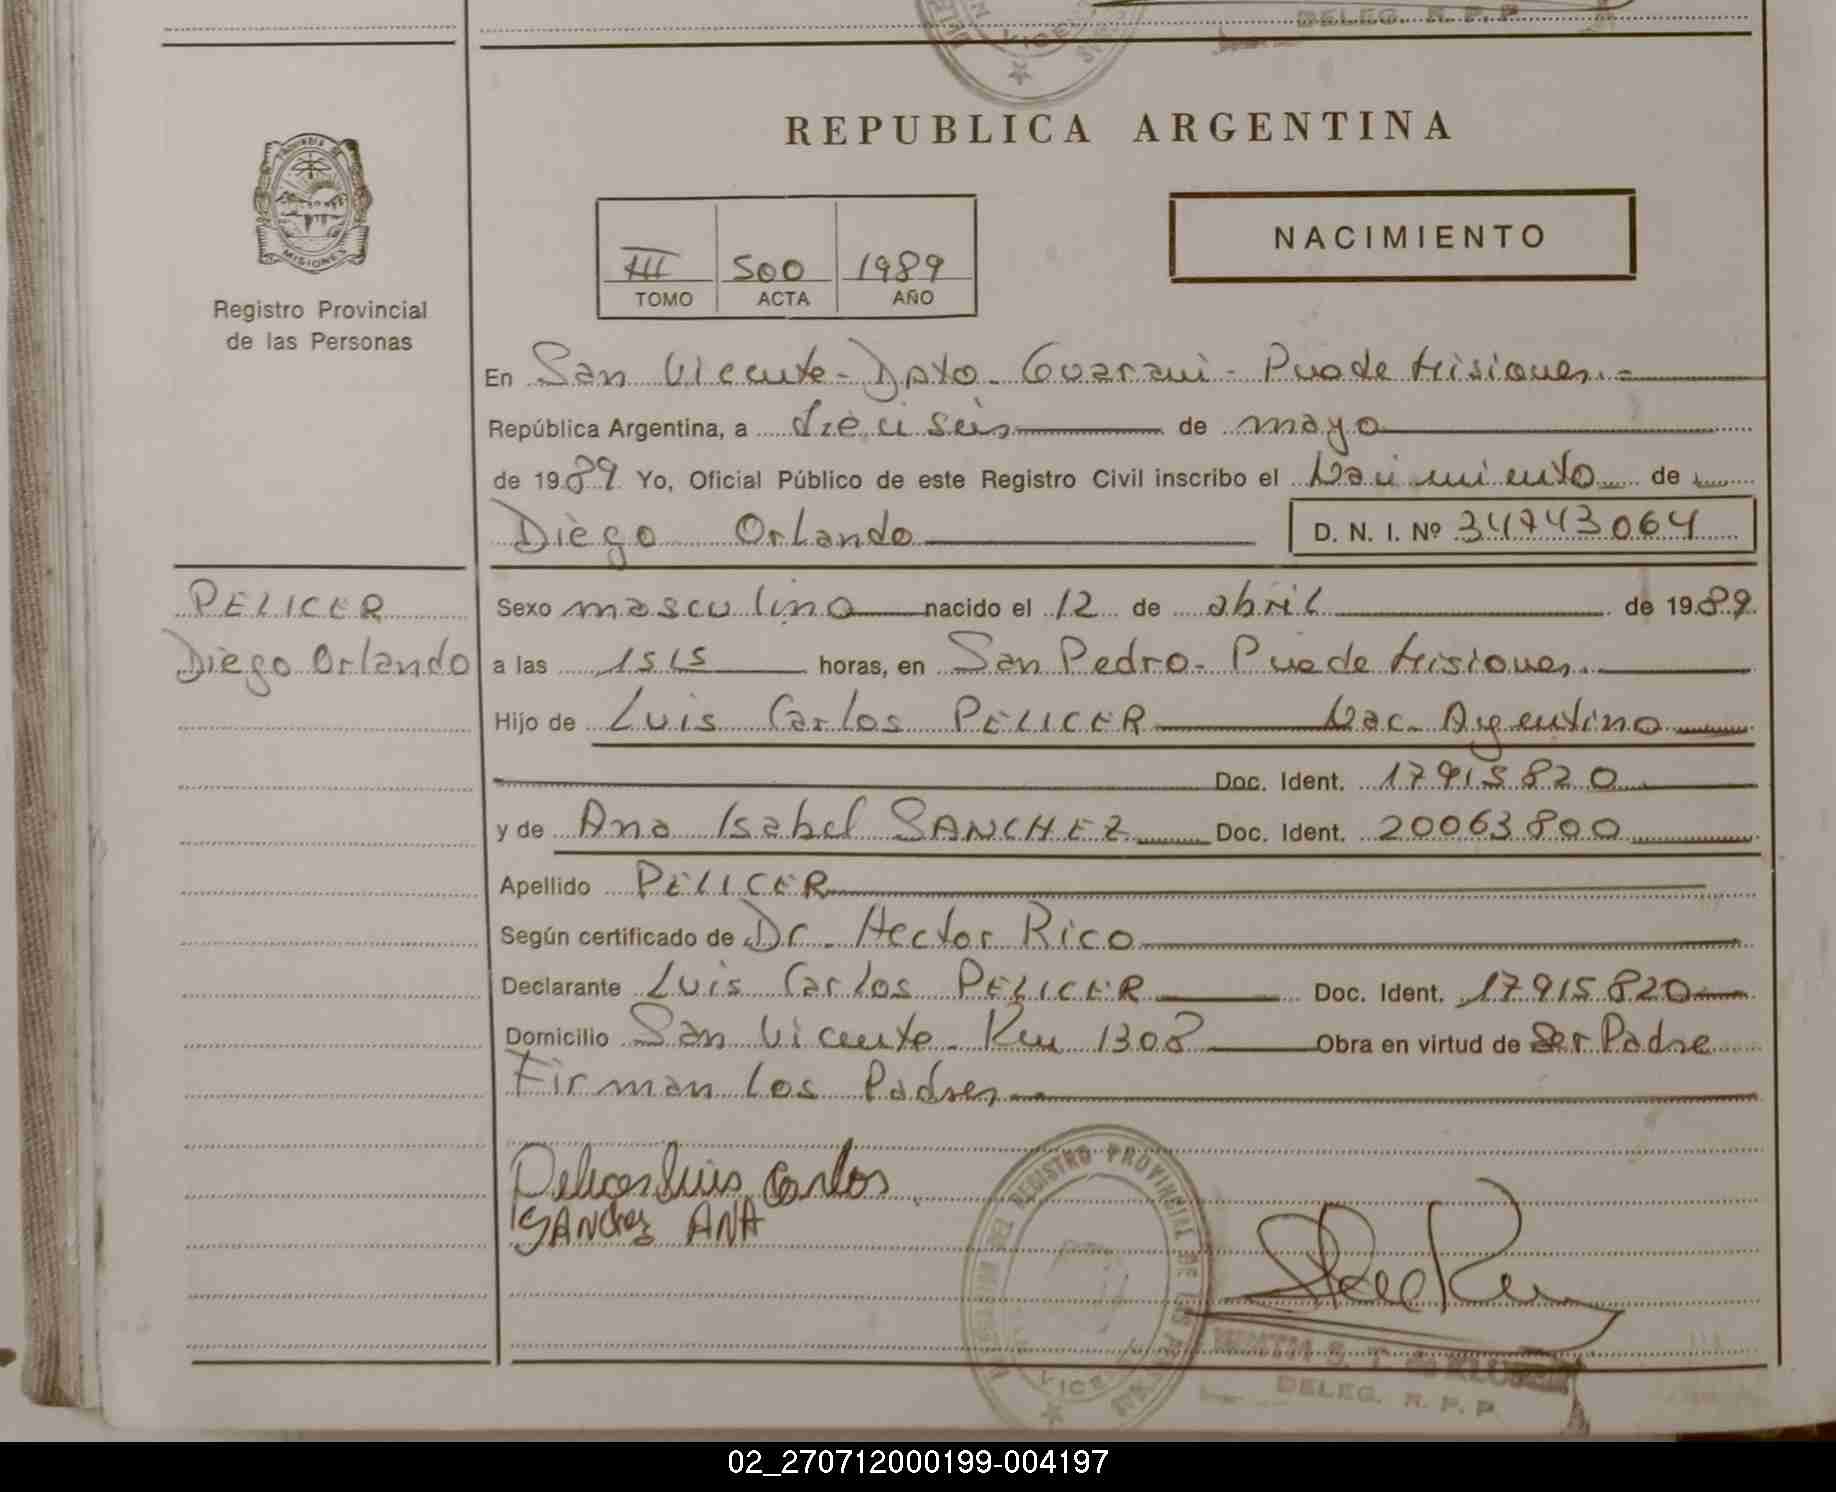 DELEG. R. P. P.
REPUBLICA ARGENTINA
PROVINCIA DE
MISIONES
Registro Provincial
de las Personas
NACIMIENTO
III 500 1989
TOMO ACTA AÑO
En San Vicente - Dpto. Guarani - Pvade Misiones.-
República Argentina, a dieciseis de mayo
de 1989 Yo, Oficial Público de este Registro Civil inscribo el Nacimiento de
Diego Orlando D. N. I. Nº 34743064
PELICER
Diego Orlando
Sexo masculino nacido el 12 de abril de 1989
a las 1515 horas, en San Pedro - Pvade Misiones.
Hijo de Luis Carlos PELICER Nac. Argentino
Doc. Ident. 17915820
y de Ana Isabel SANCHEZ Doc. Ident. 20063800
Apellido PELICER
Según certificado de Dr. Hector Rico
Declarante Luis Carlos PELICER Doc. Ident. 17915820
Domicilio San Vicente - Km 1308 Obra en virtud de Ser Padre
Firman los Padres
Pelicer Luis Carlos
SANchez ANA
REGISTRO PROVINCIAL DE LAS PERSONAS
DELEG. R. P. P.
02_270712000199-004197